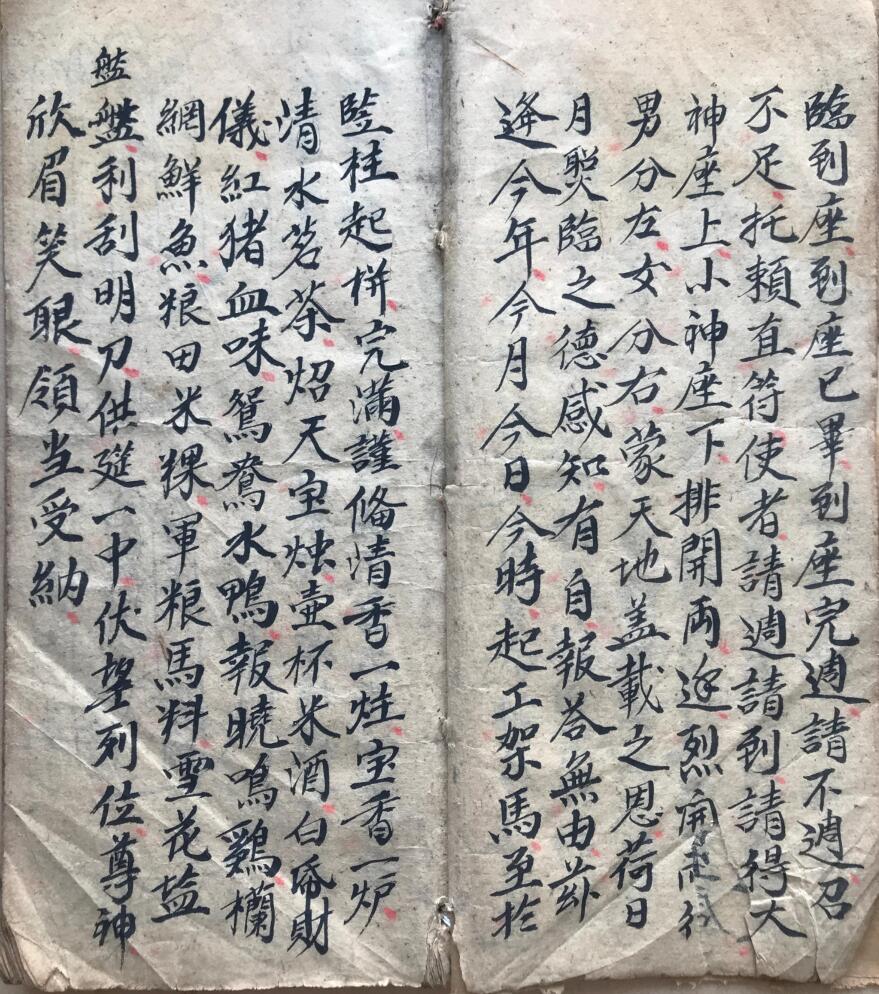 臨到座到座已畢到座完週請不週召
不足托賴直符使者請週請到請得大
神座上小神座下排開兩逆烈開
男分左女分右蒙天地盖載之恩荷日
月照臨之德感知有自報荅無由兹
逢今年今月今日今時起工架馬至於
竪柱起栟完滿謹俻清香一炷宝香一炉
清水茗茶炤天宝烛壷杯米酒白帋財
儀紅猪血味鴛鴦水鴨報曉鳴鷄欄
網鮮魚粮田米粿軍粮馬料雪花盐
盤利刮明刀供筵一中伏望列位尊神
欣眉笑眼領当受納